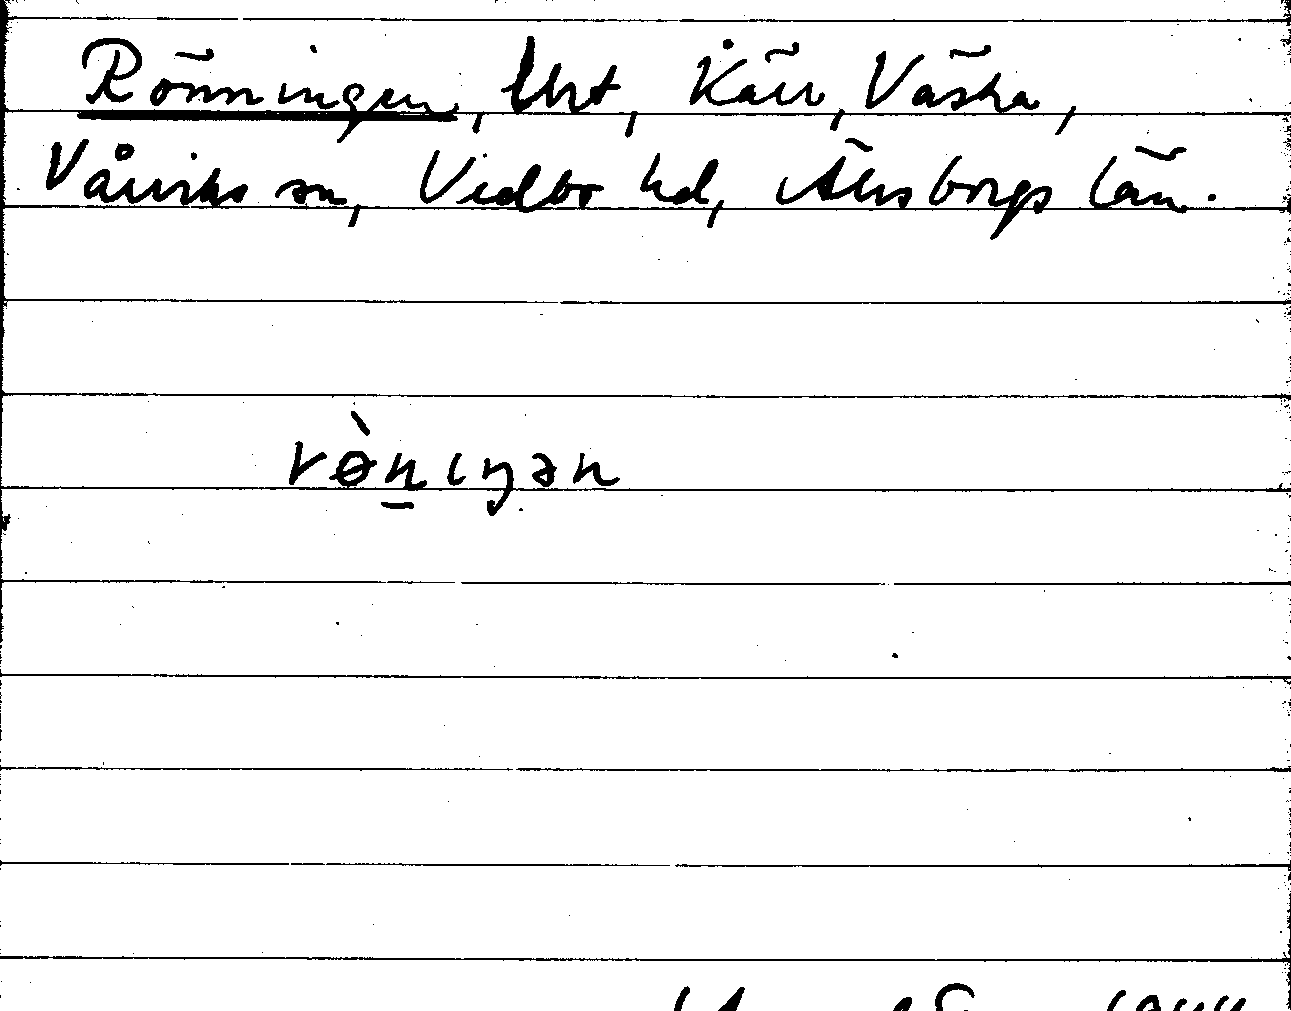 Rönningen, lht, Kärr, Västra,
Vårviks sn, Vedbo hd, Älvsborgs län.
rø̀n̲ıŋən